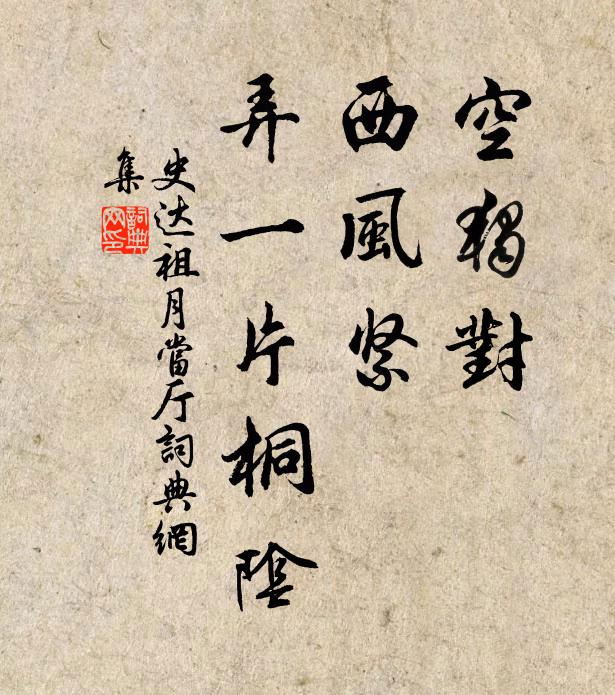 空獨對
西風緊
弄一片桐陰
史达祖月當厅詞典網
集
詞典
网印